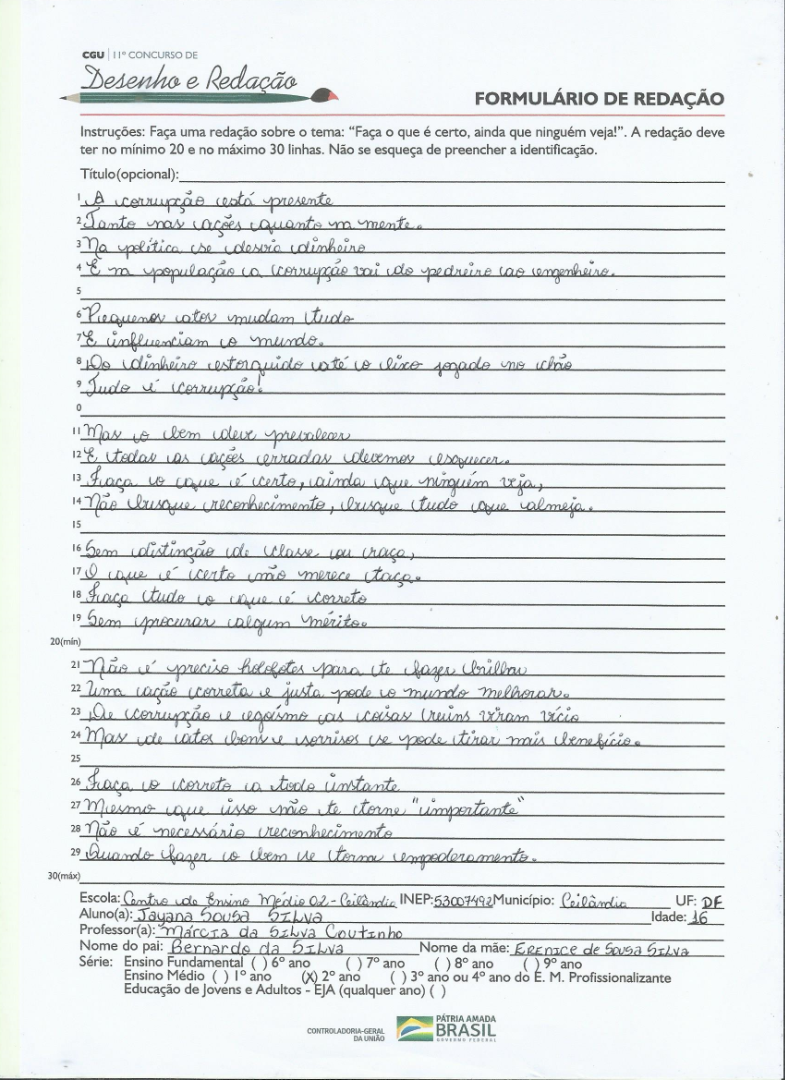 CGU | 11º CONCURSO DE
Desenho e Redação
FORMULÁRIO DE REDAÇÃO
Instruções: Faça uma redação sobre o tema: "Faça o que é certo, ainda que ninguém veja!". A redação deve
ter no mínimo 20 e no máximo 30 linhas. Não se esqueça de preencher a identificação.
Título(opcional):
1 A corrupção está presente
2 Tanto nas ações quanto na mente.
3 Na política se desvia dinheiro
4 E na população a corrupção vai do pedreiro ao engenheiro.
5
6 Pequenos atos mudam tudo
7 E influenciam o mundo.
8 Do dinheiro estorquido até o lixo jogado no chão
9 Tudo é corrupção!
0
11 Mas o bem deve prevalecer
12 E todas as ações erradas devemos esquecer.
13 Faça o que é certo, ainda que ninguém veja,
14 Não busque reconhecimento, busque tudo que almeja.
15
16 Sem distinção de classe ou raça,
17 O que é certo não merece taça.
18 Faça tudo o que é correto
19 Sem procurar algum mérito.
20(mín)
21 Não é preciso holofotes para te fazer brilhar
22 Uma ação correta e justa pode o mundo melhorar.
23 De corrupção e egoísmo as coisas ruins viram vício
24 Mas de atos bons e sorrisos se pode tirar mais benefício.
25
26 Faça o correto a todo instante
27 Mesmo que isso não te torne "importante"
28 Não é necessário reconhecimento
29 Quando fazer o bem se torna empoderamento.
30(máx)
Escola: Centro de Ensino Médio 02 - Ceilândia INEP: 53007492 Município: Ceilândia UF: DF
Aluno(a): Jayana Sousa Silva Idade: 16
Professor(a): Márcia da Silva Coutinho
Nome do pai: Bernardo da Silva Nome da mãe: Erenice de Sousa Silva
Série: Ensino Fundamental ( ) 6º ano ( ) 7º ano ( ) 8º ano ( ) 9º ano
Ensino Médio ( ) 1º ano (X) 2º ano ( ) 3º ano ou 4º ano do E. M. Profissionalizante
Educação de Jovens e Adultos - EJA (qualquer ano) ( )
CONTROLADORIA-GERAL
DA UNIÃO
PÁTRIA AMADA
BRASIL
GOVERNO FEDERAL